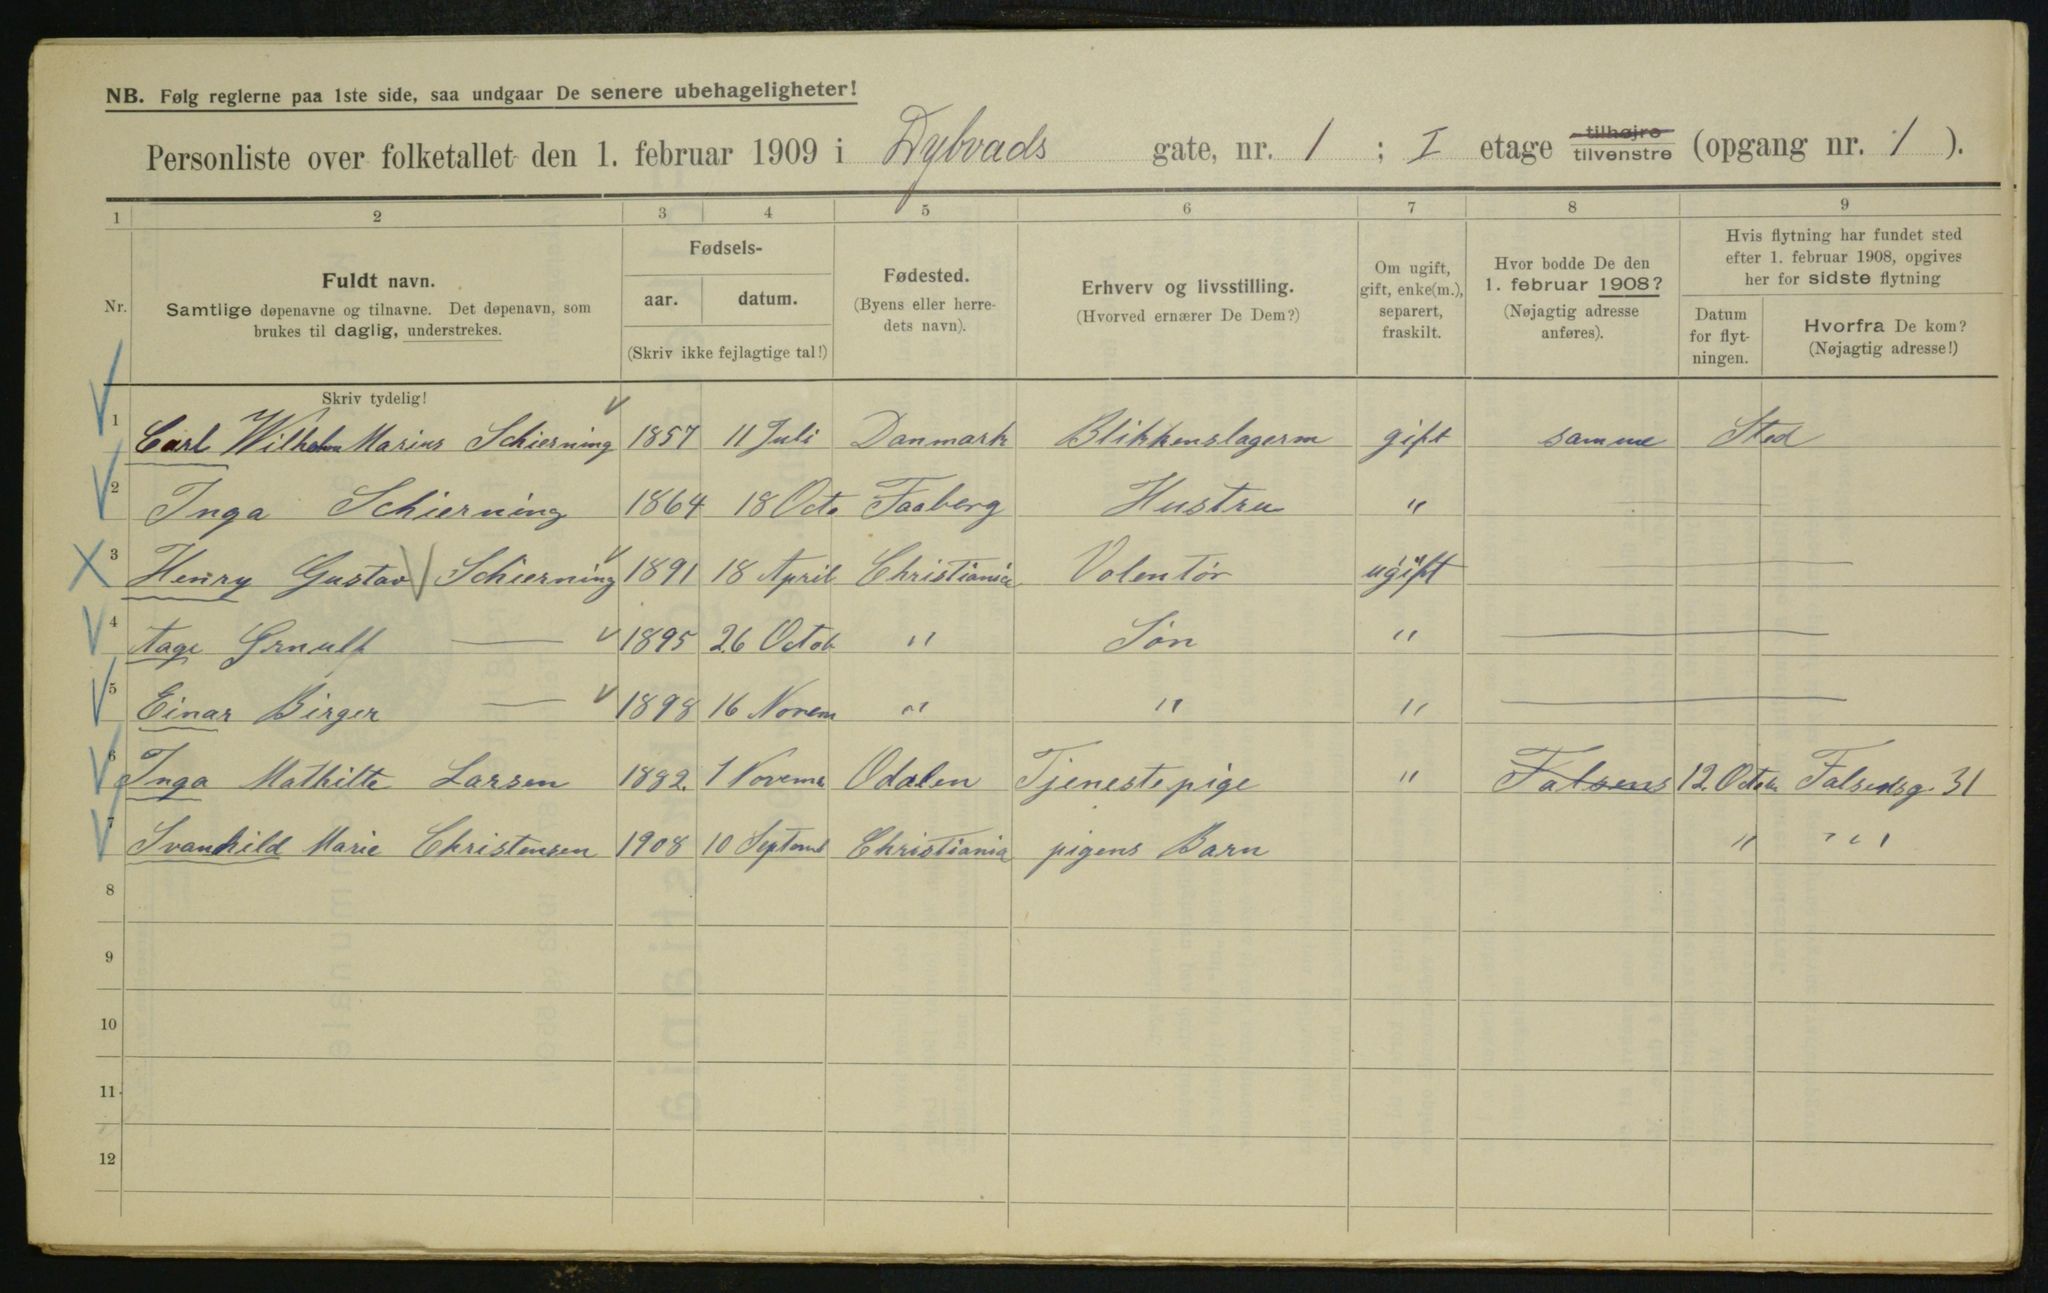 NB. Følg reglerne paa 1ste side, saa undgaar De senere ubehageligheter!
Personliste over folketallet den 1. februar 1909 i Dybvads gate, nr. 1 ; I etage tilhøjre tilvenstre (opgang nr. 1 ).
1 2 3 4 5 6 7 8 9
Nr.
Fuldt navn.
Samtlige døpenavne og tilnavne. Det døpenavn, som
brukes til daglig, understrekes.
Skriv tydelig!
Fødsels-
aar. datum.
(Skriv ikke fejlagtige tal!)
Fødested.
(Byens eller herre-
dets navn).
Erhverv og livsstilling.
(Hvorved ernærer De Dem?)
Om ugift,
gift, enke(m.),
separert,
fraskilt.
Hvor bodde De den
1. februar 1908?
(Nøjagtig adresse
anføres).
Hvis flytning har fundet sted
efter 1. februar 1908, opgives
her for sidste flytning
Datum
for flyt-
ningen.
Hvorfra De kom?
(Nøjagtig adresse!)
1 Carl Wilhelm Marius Schierning 1857 11 Juli Danmark Blikkenslagerm gift samme Sted
2 Inga Schierning 1864 18 Octo Faaberg Hustru "
3 Henry Gustav Schierning 1891 18 April Christiania Volentør ugift
4 Aage — 1895 26 Octob " Søn "
5 Einar Birger — 1898 16 Novem " " "
6 Inga Mathilte Larsen 1882. 1 Novema Odalen Tjenestepige " Falsens 12. Octob Falsensg. 31
7 Svanhild Marie Christensen 1908 10 Septemb Christiania pigens Barn " " "
8
9
10
11
12